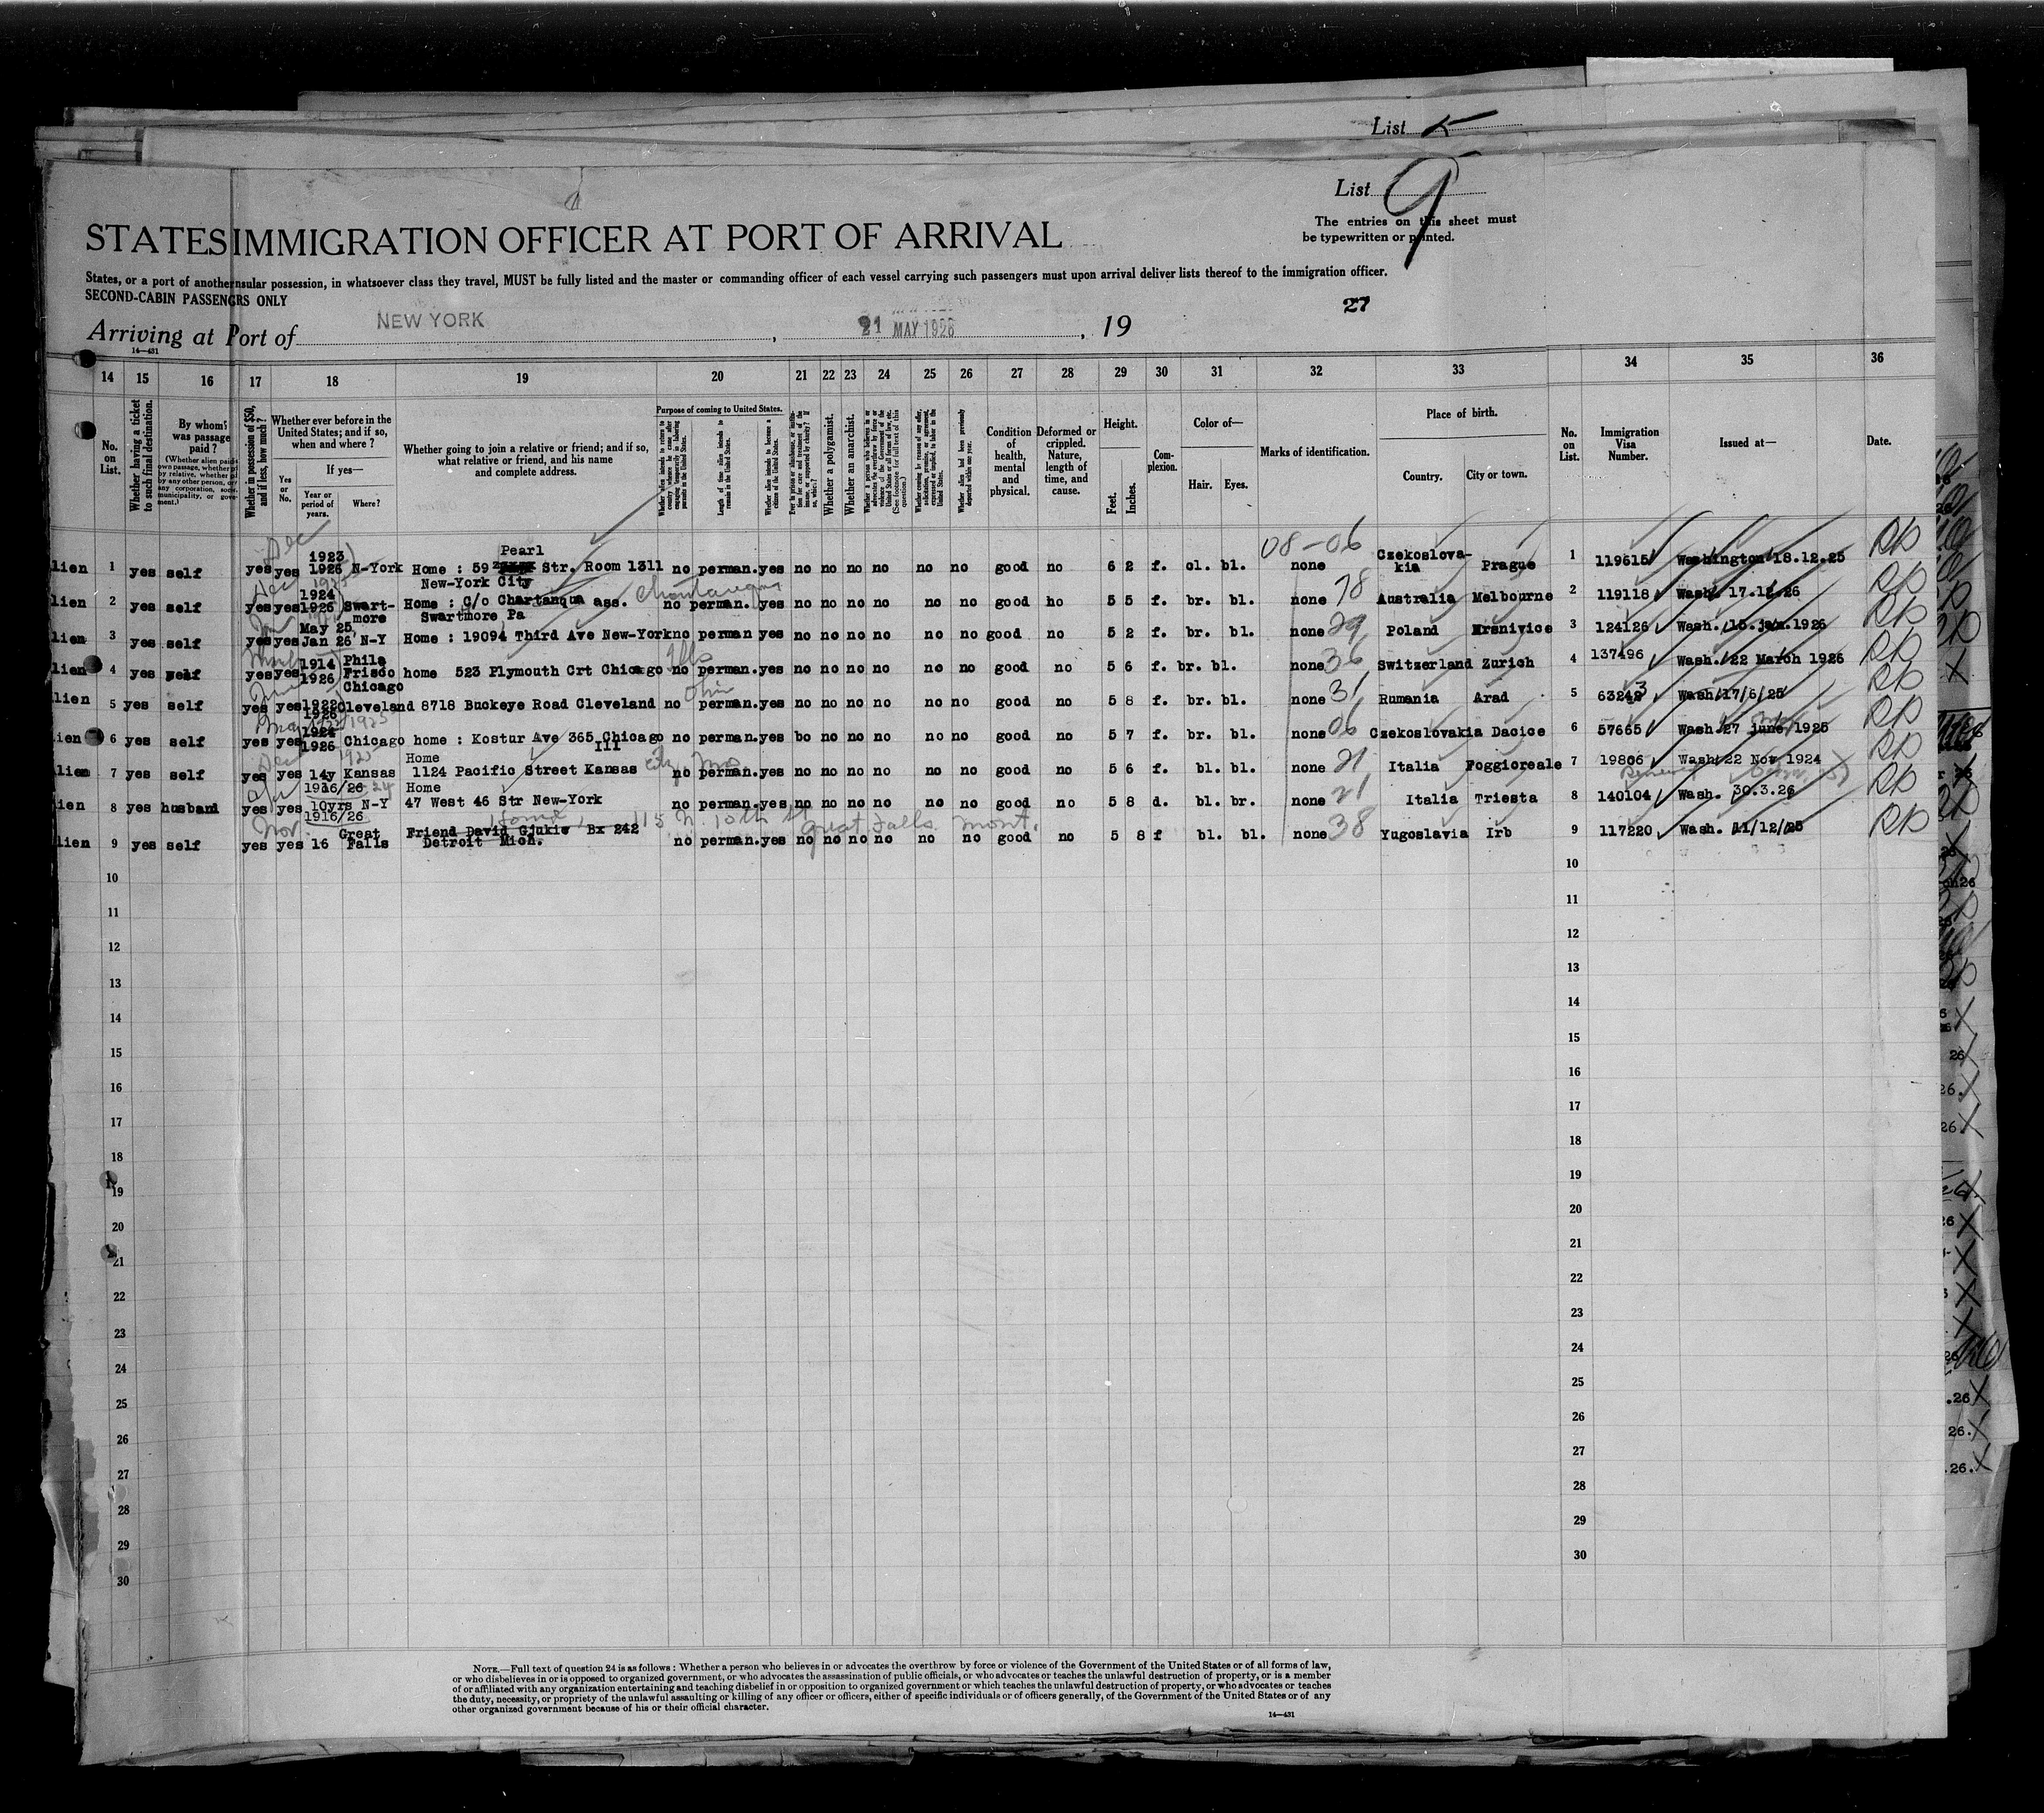 List 5
List 9
The entries on this sheet must
be typewritten or printed.
STATES IMMIGRATION OFFICER AT PORT OF ARRIVAL
States, or a port of another nsular possession, in whatsoever class they travel, MUST be fully listed and the master or commanding officer of each vessel carrying such passengers must upon arrival deliver lists thereof to the immigration officer.
SECOND-CABIN PASSENGRS ONLY
27
Arriving at Port of NEW YORK, 21 MAY 1926, 19
14—431
14 15 16 17 18 19 20 21 22 23 24 25 26 27 28 29 30 31 32 33 34 35 36
No. on List.
Whether having a ticket to such final destination.
By whom was passage paid?
Whether in possession of $50, and if less, how much?
Whether ever before in the United States; and if so, when and where?
Yes or No.
If yes—
Year or period of years.
Where?
Whether going to join a relative or friend; and if so, what relative or friend, and his name and complete address.
Purpose of coming to United States.
Whether a polygamist.
Whether an anarchist.
Condition of health, mental and physical.
Deformed or crippled. Nature, length of time, and cause.
Height.
Feet.
Inches.
Complexion.
Color of—
Hair.
Eyes.
Marks of identification.
Place of birth.
Country.
City or town.
No. on List.
Immigration Visa Number.
Issued at—
Date.
08-06
lien 1 yes self yes yes Dec 1923 1925 N-York Home : 59 Pearl Str. Room 1311 New-York City no perman. yes no no no no no no good no 6 2 f. cl. bl. none Czekoslova-kia Prague 1 119615 Washington 18.12.25
lien 2 yes self yes yes Dec 1924 1926 Swart-more Home : C/o Chartanqua ass. Chautauqua Swartmore Pa no perman. yes no no no no no no good no 5 5 f. br. bl. none 78 Australia Melbourne 2 119118 Wash. 17.12.26
lien 3 yes self yes yes May 25, Jan 26 N-Y Home : 19094 Third Ave New-York no perman yes no no no no no no good no 5 2 f. br. bl. none 29 Poland Mrsnivice 3 124126 Wash. 15.jan.1926
lien 4 yes self yes yes 1914 1926 Phila Frisco Chicago home 523 Plymouth Crt Chicago Ills no perman. yes no no no no no no good no 5 6 f. br. bl. none 36 Switzerland Zurich 4 137496 Wash. 22 March 1926
lien 5 yes self yes yes 1922 1926 Cleveland 8718 Buckeye Road Cleveland Ohio no perman. yes no no no no no no good no 5 8 f. br. bl. none 31 Rumania Arad 5 Wash/17/6/25
lien 6 yes self yes yes 1926 Chicago home : Kostur Ave 365 Chicago Ill no perman. yes bo no no no no no good no 5 7 f. br. bl. none 06 Czekoslovakia Dacice 6 57665 Wash. 27 june 1925
lien 7 yes self yes yes 14y Kansas Home 1124 Pacific Street Kansas City Mo. no perman. yes no no no no no no good no 5 6 f. bl. bl. none 21 Italia Foggioreale 7 19806 Wash. 22 Nov 1924
lien 8 yes husband yes yes 1916/26 10yrs N-Y Home 47 West 46 Str New-York no perman. yes no no no no no no good no 5 8 d. bl. br. none 21 Italia Triesta 8 140104 Wash. 30.3.26
lien 9 yes self yes yes Nov. 1916/26 16 Great Falls Friend David Gjukie Bx 242 Detroit Mich. home 115 N. 10th St Great Falls Mont. no perman. yes no no no no no no good no 5 8 f bl. bl. none 38 Yugoslavia Irb 9 117220 Wash. 11/12/25
10 10
11 11
12 12
13 13
14 14
15 15
16 16
17 17
18 18
19 19
20 20
21 21
22 22
23 23
24 24
25 25
26 26
27 27
28 28
29 29
30 30
NOTE.—Full text of question 24 is as follows: Whether a person who believes in or advocates the overthrow by force or violence of the Government of the United States or of all forms of law,
or who disbelieves in or is opposed to organized government, or who advocates the assassination of public officials, or who advocates or teaches the unlawful destruction of property, or is a member
of or affiliated with any organization entertaining and teaching disbelief in or opposition to organized government or which teaches the unlawful destruction of property, or who advocates or teaches
the duty, necessity, or propriety of the unlawful assaulting or killing of any officer or officers, either of specific individuals or of officers generally, of the Government of the United States or of any
other organized government because of his or their official character.
14—431